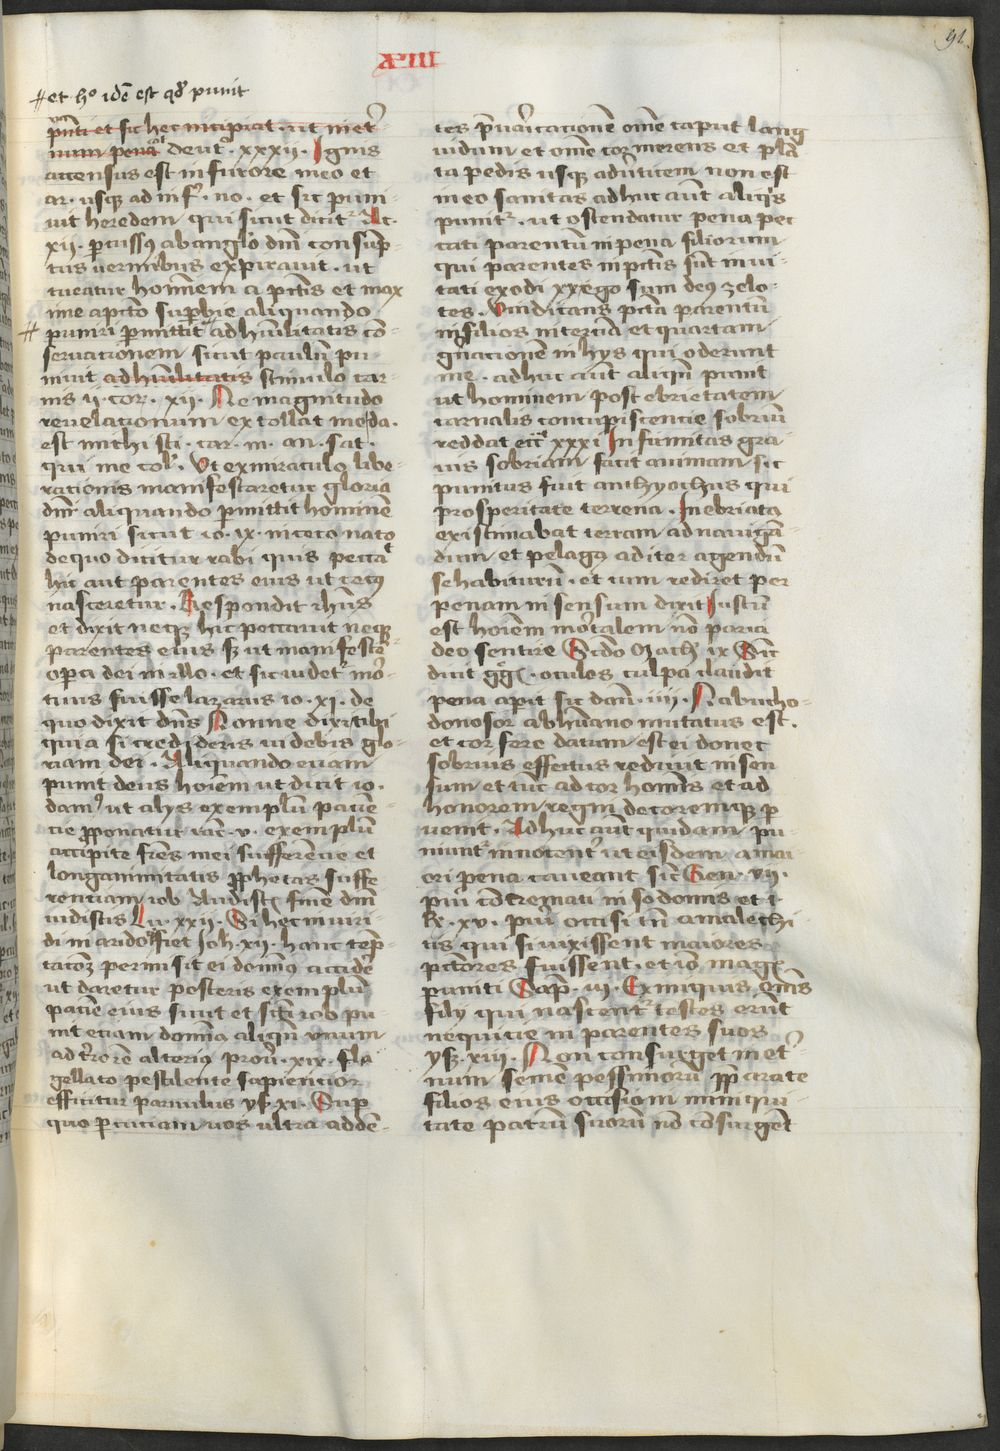 91
XIII
# et hº idē est qđ punit
pn̄ti et sic hec incipiat. ut in et᷒
num pena deut᷒. xxxij. Ignis
accensus est in furore meo et
ar. usqꝫ ad inf᷒. no. et sic puni-
uit heredem qui sicut dicit᷒ Ac.
xij. ꝑcussꝰ ab anglo dn̄i consūp-
tus uermibus expirauit. ut
tueatur hominem a pctīs et max
ime a pctō suꝑbie aliquando
# puniri ꝑmittit # ad hūilitatis cō-
seruationem sicut paulū pu-
niuit ad hūilitatis stimulo car-
nis ij. cor. xij. Ne magnitudo
reuelationum extollat me da.
est michi sti. car. m. an. sat.
qui me col᷒. Ut ex miraculo libe-
rationis manifestaretur gloria
dn̄i aliquando ꝑmittit hominē
puniri sicut io. ix. in ceco nato
de quo dicitur rabi quis pecca᷒
hic aut parentes eius ut cecꝰ
nasceretur. Respondit ihūs
et dixit neqꝫ hic peccauit neqꝫ
parentes eius sꝫ ut manifestē-
opera dei in illo. et sic uidet᷒ mor᷒
tuus fuisse lazarus io. xi. de
quo dixit dn̄s Nonne dixi tibi
quia si credideris uidebis glo-
riam dei. Aliquando etiam
punit deus hoīem ut dicit io.
damꝰ ut alijs exemplū pacien-
cie ꝓponatur iac. v. exemplū
accipite frēs mei sufferencie et
longanimitatis ꝓphetas suffe
rentiam iob Audistꝭ finē dn̄i
uidistis Lu. xxij. Si hec in uiri-
di in arido qͥ fiet Joh. xij. hanc tēp-
tacōꝫ permisit ei dominꝰ accidē
ut daretur posteris exemplū
pacīe eius sicut et scī iob pu-
nit etiam dominꝰ aliqn̄ vnum
ad t᷒rorē alterius prou᷒. xix. fla
gellato pestilente sapiencior
efficitur paruulus ys. xi. Suꝑ
quo ꝑcuciam uos ultra addē-
tes p᷒uaricacionē om̄e caput lang
uidum et om̄e cor merens et plā
ta pedis usqꝫ ad uerticem non est
in eo sanitas adhuc aūt aliqͥs
punit᷒. ut ostendatur pena pec
cati parentū in pena filiorum
qui parentes in pctīs sūt imi-
tati exodi xx ego sum deꝰ zelo-
tes. Uindicans pctā parentū
in filios in terciā et quartam
gn̄acionē in hys qui oderunt
me. adhuc aūt aliqn̄ punit
ut hominem post ebrietatem
carnalis concupiscentie sobriū
reddat ecc᷒ xxxi Infirmitas gra-
uis sobriam facit animam sic
punitus fuit anthyochus qui
prosperitate terrena. Inebriatꝰ
existimabat terram ad nauigā-
dum et pelagꝰ ad iter agendū
se habiturū. et cum rediret per
penam in sensum dixit Justū
est hoīem mortalem nō paria
deo sentire Scd̄o Mach᷒ ix Sic
dicit gg᷒. oculos culpa claudit
pena aperit sic dan᷒. iiij. Nabucho-
donosor ab hūano mutatus est.
et cor fere datum est ei donec
sobrius effectus rediuit in sen
sum et tūc ad cor hominis et ad
honorem regni decoremqꝫ ꝑ
uenit. Adhuc aūt quidam pu-
niunt᷒ innocent᷒ ut eisdem a mai
ori pena caueant sic Gen. vij.
pūi cōcremati in sodomis et i.
R. xv. pūi occisi in amalechi
tis qui si uixissent maiores
pctōres fuissent. et iō magꝭ
puniti Sap. iij. Ex iniquis om̄s
filij qui nascent᷒ testes erūt
nequicie in parentes suos
ysꝫ. xiii. Non consurget in et᷒
num semē pessimorū ppͣrate
filios eius occisioni in iniqui-
tate patrū suorū nō cōsurgēt